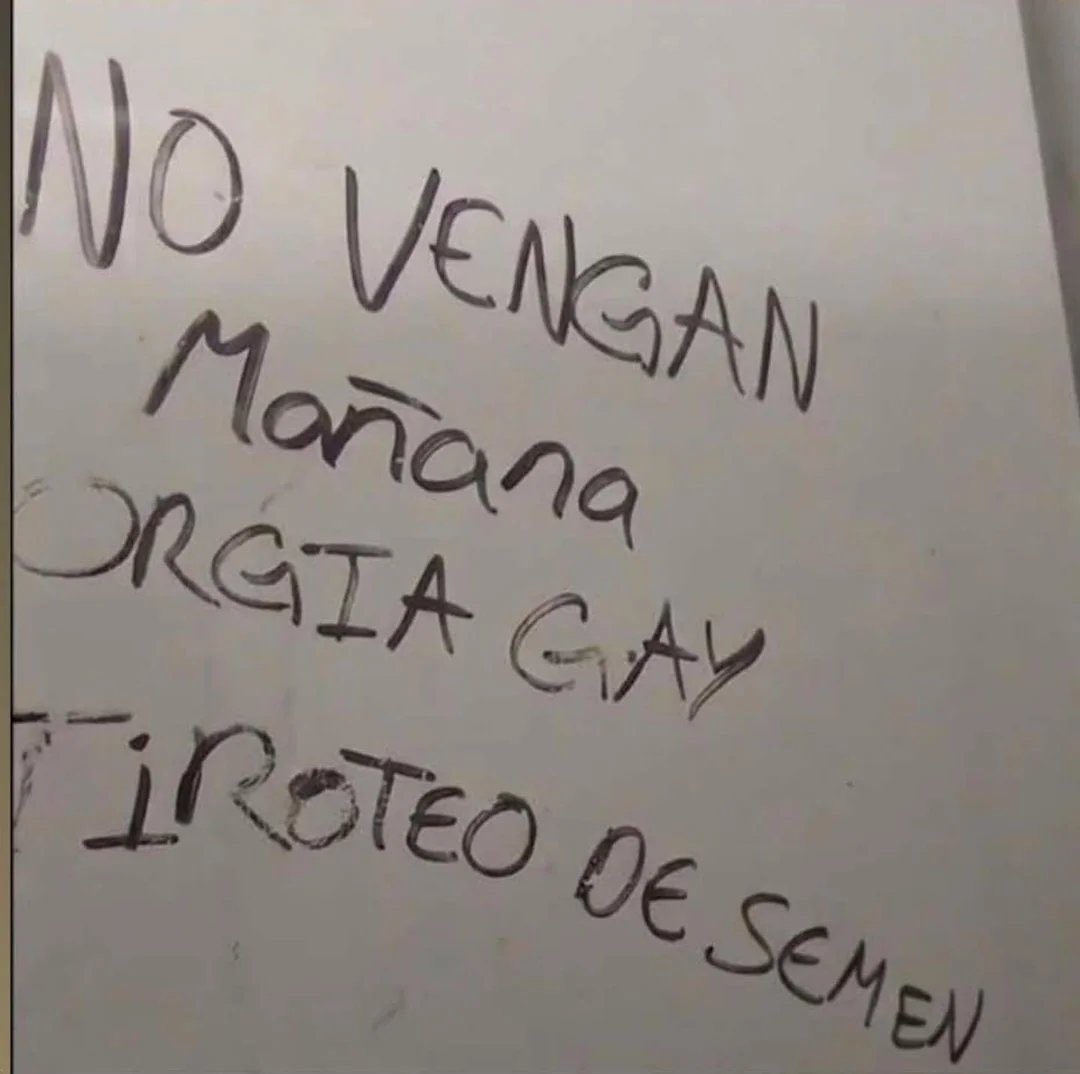 NO VENGAN
Mañana
ORGIA GAY
TiROTEO DE SEMEN